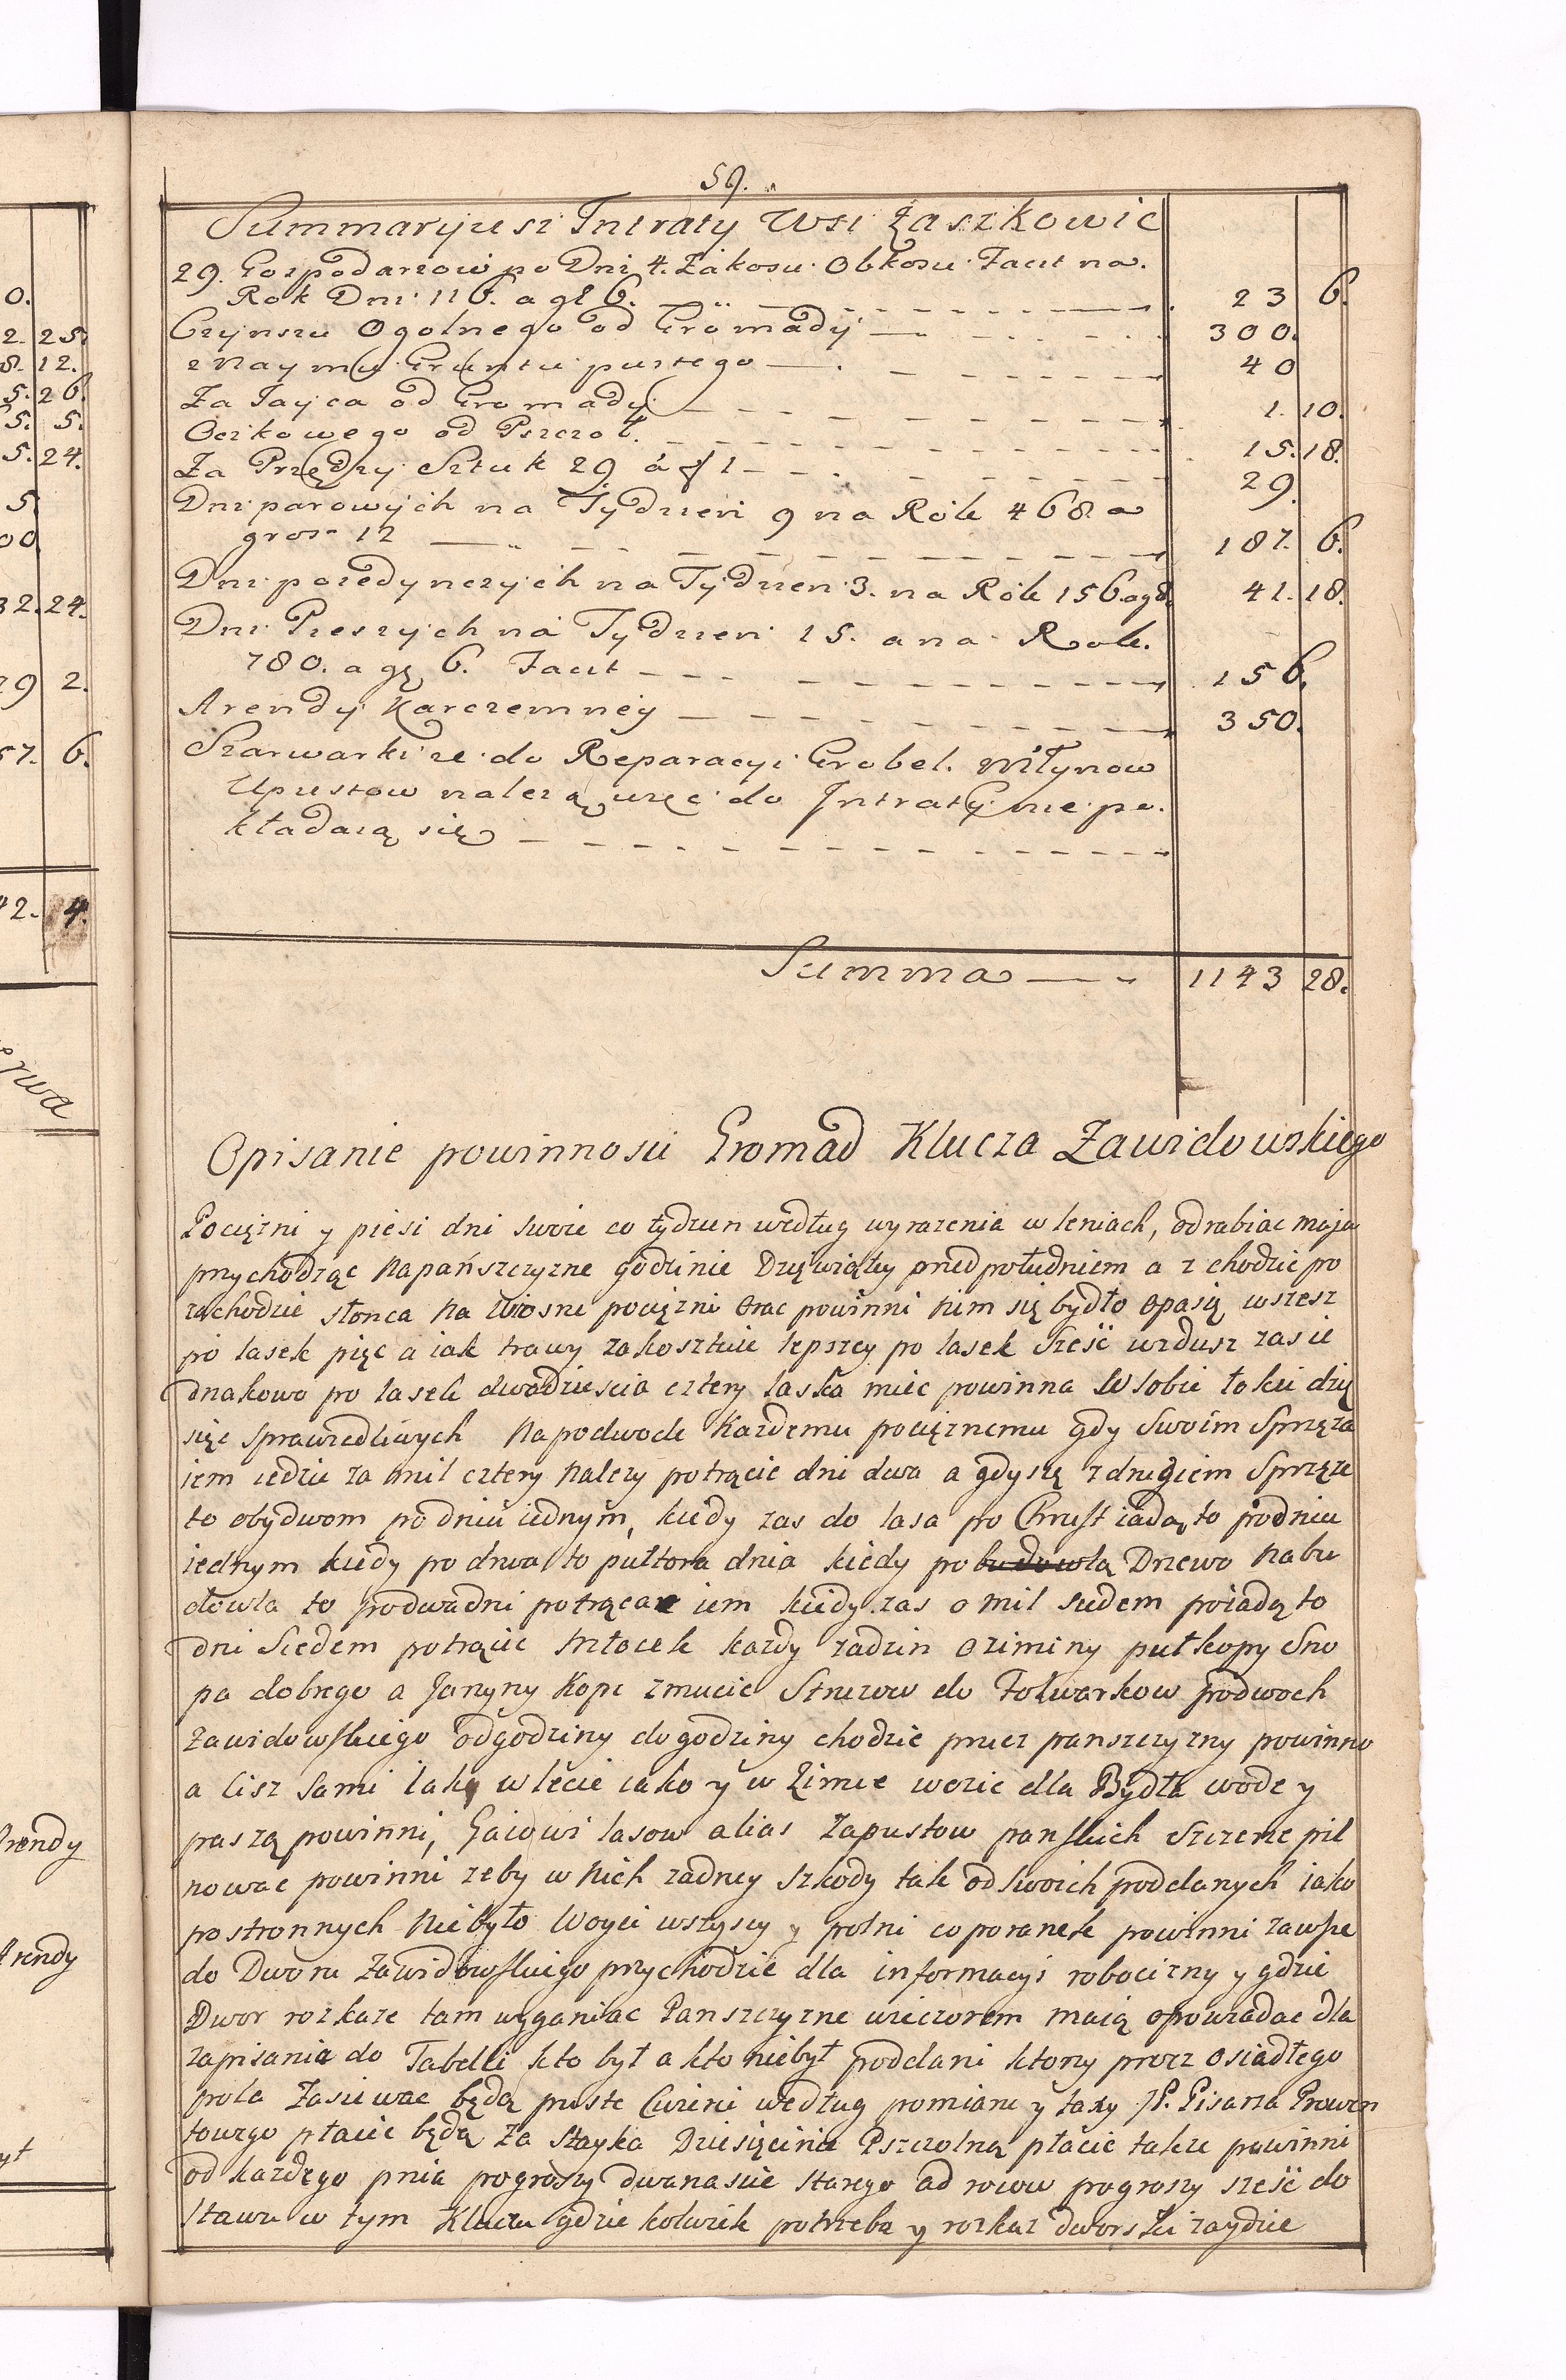 59.
Summaryusz Intraty Wsi Zaszkowic
29. Gospodarzow po Dni 4. Zakosu. Obkosu. Facit na.
Rok Dni 116. a gł 6. 23 6.
Czynszu Ogolnego od Gromady 300.
z Naymu Gruntu pustego 40
Za Jayca od Gromady 1. 10.
Oczkowego od Pszczoł. 15. 18.
Za Przędzy Sztuk 29. á zł 1 29.
Dni parowych na Tydzień 9 na Rok 468 a
grosz 12 187. 6.
Dni poiedynczych na Tydzien 3. na Rok 156. a g 8. 41. 18.
Dni Pieszych na Tydzien 15. a na Rok.
780. a gę 6. Facit 156.
Arendy Karczemney 350.
Szarwarki że do Reparacyi Grobel. Młynow
Upustow należą więc do Intraty nie po.
kładaią się
Summa 1143 28.
Opisanie powinnosci Gromad Klucza Zawidowskiego
Pociężni y piesi dni swoie co tydzien według wyrazenia w leniach, odrabiac maja
przychodząc na pańszczyzne godzinie Dziewiątey przed południem a z chodzic po
zachodzie słonca na wiosne pociężni orac powinni nim się bydło opasię wszesz
po lasek pięc a iak trawy zakosztuie lepszey po lasek szesć wzdusz zas ie
dnakowo po lasek dwadziescia cztery laska miec powinna w sobie łokci dzie
sięc sprawiedliwych na podwode kazdemu pociężnemu gdy swoim sprzęza
iem iedzie za mil cztery nalezy potrącic dni dwa a gdy się z drugiem sprzęze
to obydwom po dniu iednym, kiedy zas do lasa po Chrust iada, to po dniu
iednym kiedy po drwa to pułtora dnia kiedy po budowla Drzewo na bu
dowla to po dwa dni potrącac iem kiedy zas o mil siedem poiadą to
dni siedem potrącic Młocek kazdy zadzin oziminy puł kopy Sno
pa dobrego a Jarzyny kope zmucic Struzow do Folwarkow podwoch
Zawidowskiego od godziny do godziny chodzic przez panszczyzny powinno
a cisz sami tak w lecie iako y w Zimie wozic dla Bydła wode y
paszą powinni, Gaiowi lasow alias Zapustow panskich szczerze pil
nowac powinni zeby w nich zadney szkody tak od swoich poddanych iako
postronnych nie było Woyci wszyscy y polni co poranek powinni zawsze
do Dworu Zawidowskiego przychodzic dla informacyi robocizny y gdzie
Dwor rozkaze tam wyganiac Panszczyzne wieczorem maią opowiadac dla
zapisania do Tabelli kto był a kto nie był poddani ktorzy procz osiadłego
pola Zasiewac będą puste Cwierci według pomiaru y taxy JP. Pisarza Prowen
towego płacic będą Za Stayka Dziesięcina Pszczolną płacic takze powinni
od kazdego pnia po groszy dwanascie starego ad roiow po groszy szesć do
Stawu w tym Kluczu gdzie kolwiek potrzeba y rozkaz dworski zaydzie